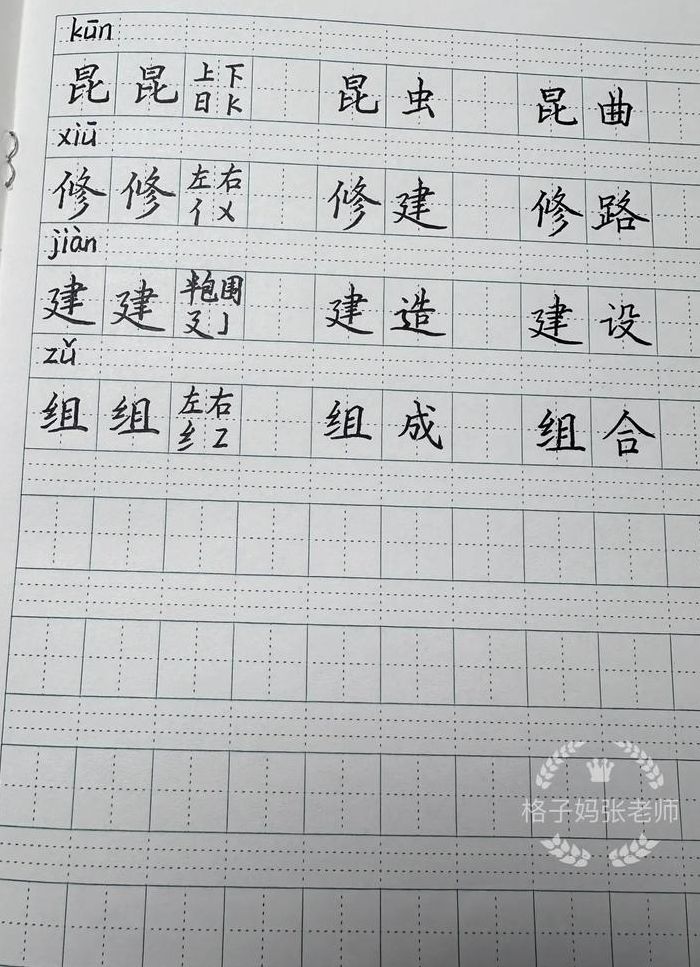 kūn
昆 昆 上下 日K 昆虫 昆曲
xiū
修 修 左右 亻X 修建 修路
jiàn
建 建 半包围 廴J 建造 建设
zǔ
组 组 左右 纟Z 组成 组合
格子妈张老师